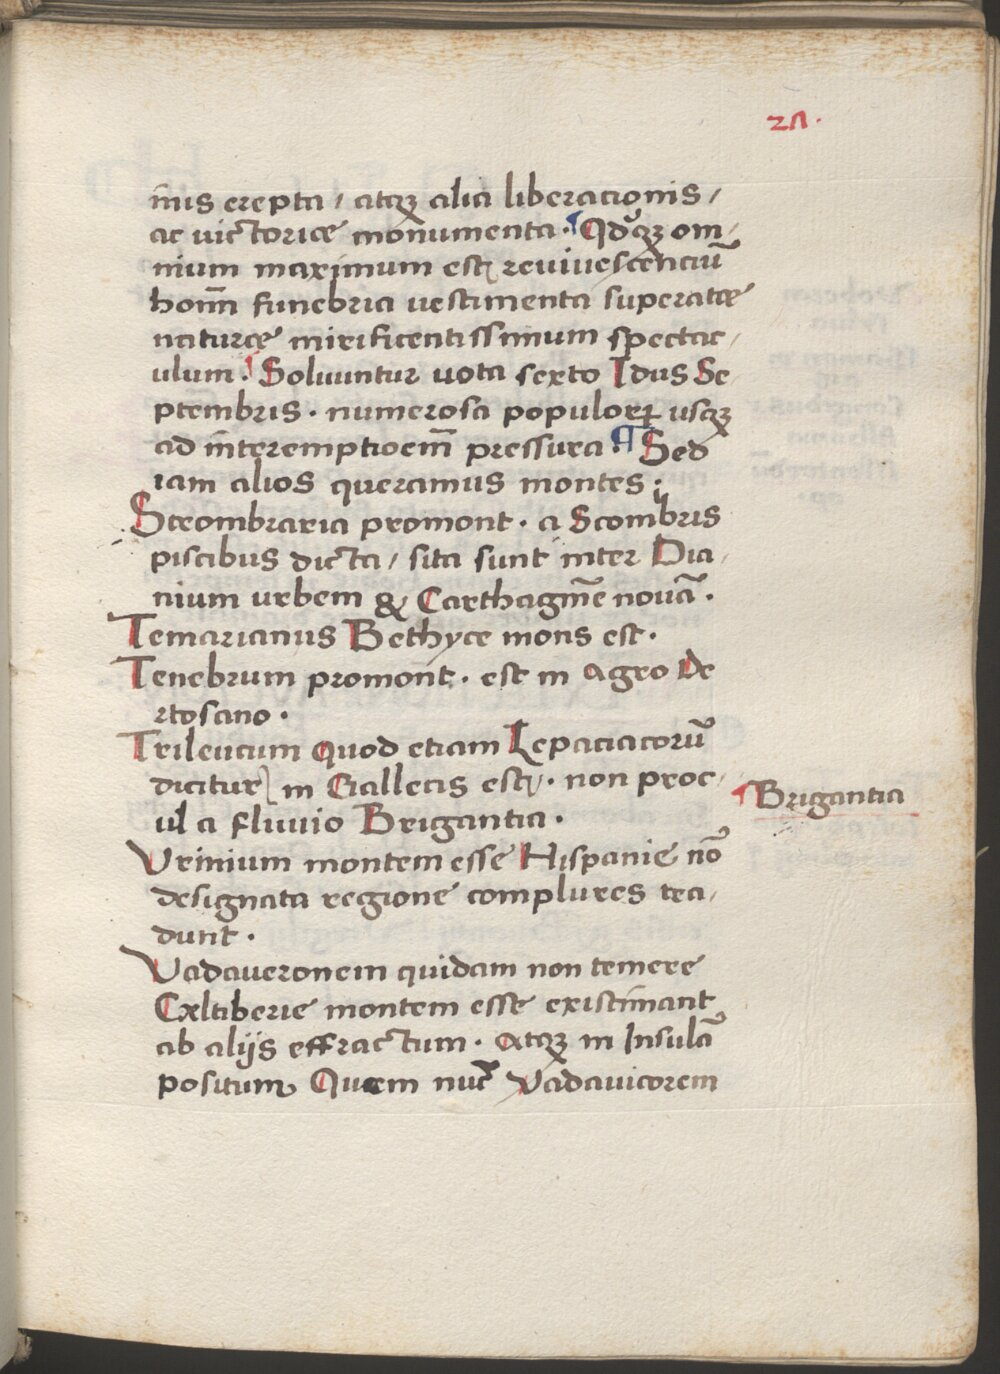 27.
inis erepta / atqꝫ alia liberacionis /
ac uictorie monumenta · ¶ Qdqꝫ om/
nium maximum est reviuescenciū
homī funebria uestimenta superatae
naturae mirificentissimum spectac/
ulum · ¶ Soluuntur uota sexto Idus Se
ptembris · numerosa populoꝝ usqꝫ
ad interemptioem̄ pressura · ¶ Sed
iam alios queramus montes ·
Scrombraria promont · a Scombris
piscibus dicta / sita sunt inter Dia/
nium urbem & Carthaginē nouā ·
Temarianus Bethyce mons est ·
Tenebrum promont · est in agro De
rtosano ·
Trileucum quod etiam Lepaciacorū
dicitur in Gallecis est · non proc/
ul a fluuio Brigantia ·
Brigantia
Vrinium montem esse Hispanie nō
designata regione complures tra/
dunt ·
Vadaueronem quidam non temere
Cxltiberie montem esse existimant
ab alijs effractum · atqꝫ in Insulā
positum Quem nuc̄ Vadauicorem